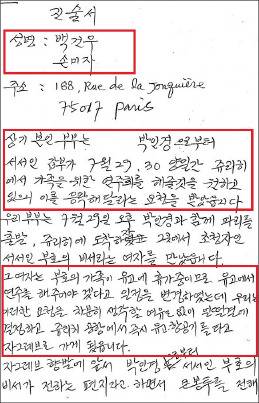 진술서
성명 : 백건우
손미자
주소 : 188, Rue de la Jonquière
75017 Paris
상기 본인부부는 박인경으로부터
서서인 부부가 7월 29, 30 양일간 쥬리히
에서 가족을 위한 연주회를 해줄것을 원하고
있으니 이를 응락해달라는 요청을 받았습니다
우리부부는 7월 29일 오후 박인경과 함께 파리를
출발, 쥬리히에 도착하였고 그곳에서 초청자인
서서인 부모의 비서라는 여자를 만났습니다.
그 여자는 부모의 가족이 유고에 휴가중이므로 유고에서
연주를 해주어야 겠다고 일정을 변경하였는데 우리는
이러한 요청을 차분히 생각할 여유도 없이
결정하고 쥬리히 공항에서 즉시 유고항공기를 타고
자그레브로 가게 됩니다.
자그레브 출발에 앞서 박인경으로부터 서서인 부모의
비서가 전하는 편지라고 하면서 오분들을 전해